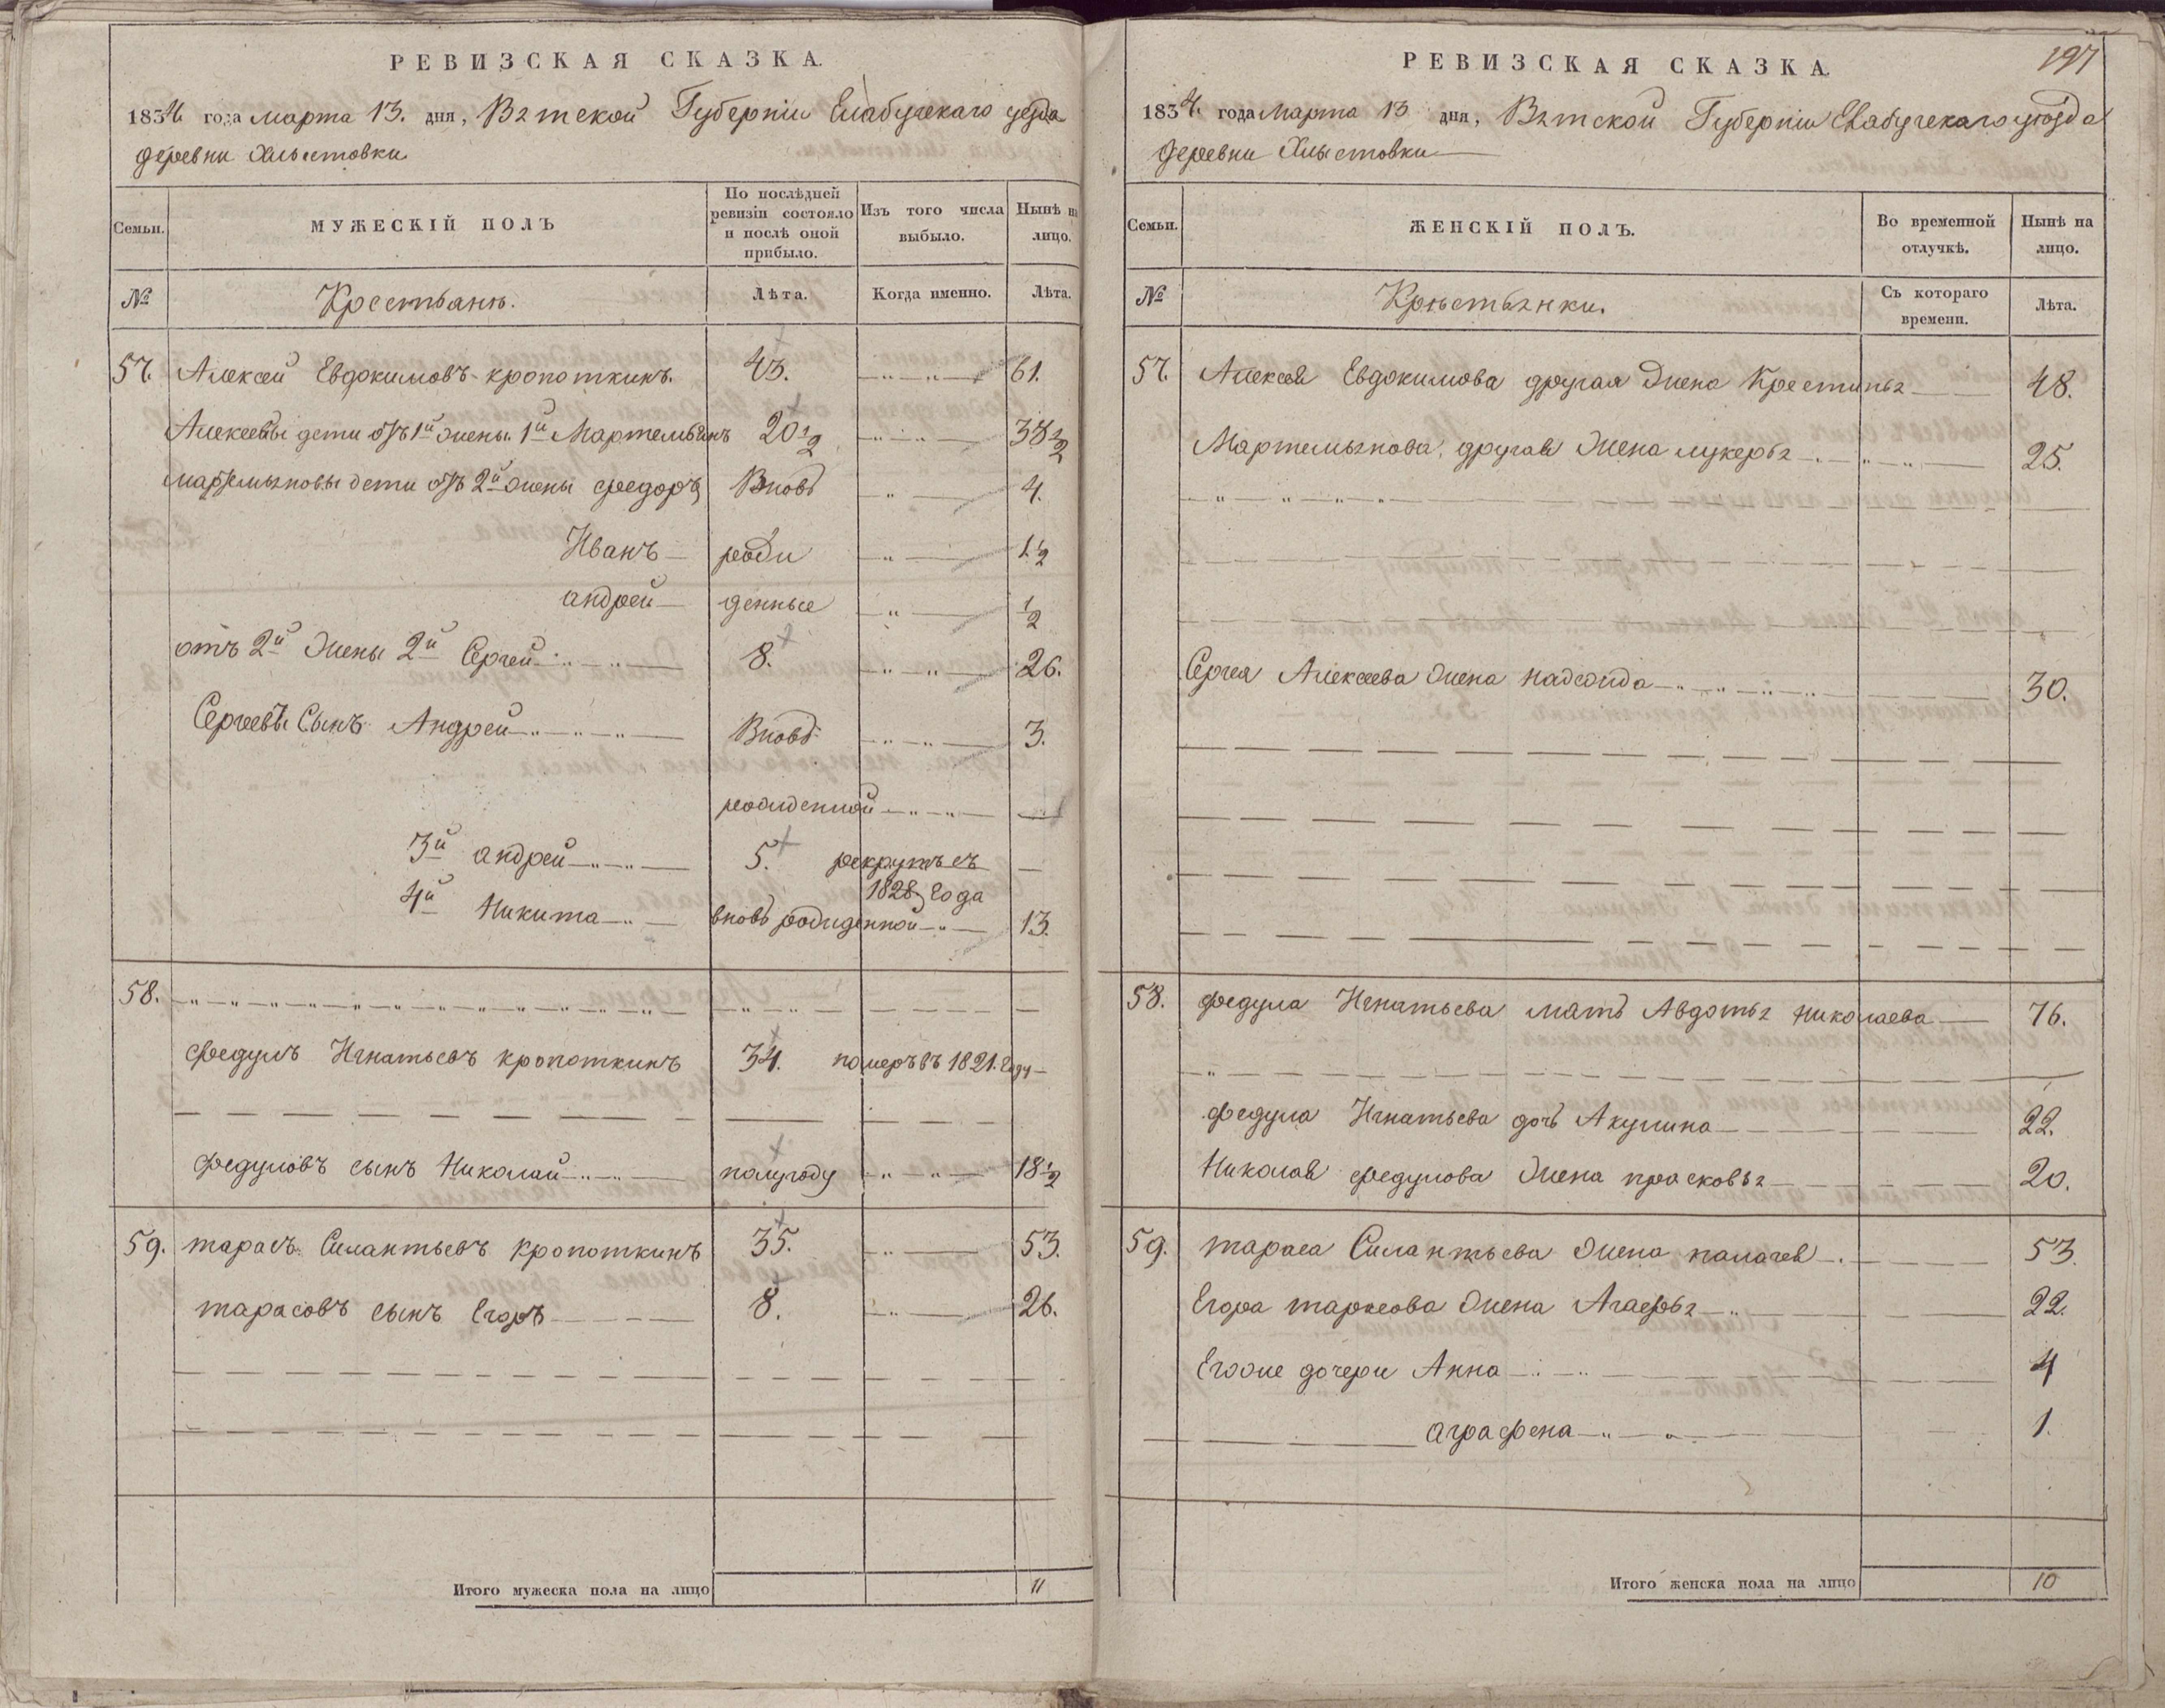 РЕВИЗСКАЯ СКАЗКА.
1834. года марта 13. дня, Вятской Губернии Елабужскаго уезда
деревни Хлыстовки
Семьи.
МУЖЕСКІЙ ПОЛЪ
По послѣдней ревизіи состояло и послѣ оной прибыло.
Изъ того числа выбыло.
Нынѣ на лицо.
№
Крестьяне.
Лѣта.
Когда именно.
Лѣта.
57. Алексей Евдокимовъ кропоткинъ. 43. 61.
Алексеевы дети отъ 1й жены. 1й Мартемьянъ 20 1/2 38 1/2
мартемьяновы дети отъ 2й жены федоръ Вновь 4.
Иванъ рожи 1 1/2
андрей денные 1/2
отъ 2й жены 2й Сергей 8. 26.
Сергеевъ Сынъ Андрей Вновь 3.
рожденной
3й андрей 5. рекрутъ съ
1828 года
4й Никита вновь рожденной 13.
58.
федулъ Игнатьевъ кропоткинъ 34. померъ въ 1821. году
федуловъ сынъ Николай полугоду 18 1/2
59. тарасъ Силантьевъ кропоткинъ 35. 53.
тарасовъ сынъ Егоръ 8. 26.
Итого мужеска пола на лицо 11
197
РЕВИЗСКАЯ СКАЗКА.
1834. года марта 13 дня, Вятской Губернии Елабужскаго уѣзда
деревни Хлыстовки
Семьи.
ЖЕНСКІЙ ПОЛЪ.
Во временной отлучкѣ.
Нынѣ на лицо.
№
Крестьянки.
Съ котораго времени.
Лѣта.
57. Алексея Евдокимова другая жена Крестинья 48.
Мартемьянова другая жена лукерья 25.
Сергея Алексеева жена надежда 30.
58. федула Игнатьева мать Авдотья николаева 76.
федула Игнатьева дочь Акулина 22.
Николая федулова жена прасковья 20.
59. тараса Силантьева жена палагея 53.
Егора тарасова жена Агафья 22.
Егоровы дочери Анна 4
аграфена 1.
Итого женска пола на лицо 10